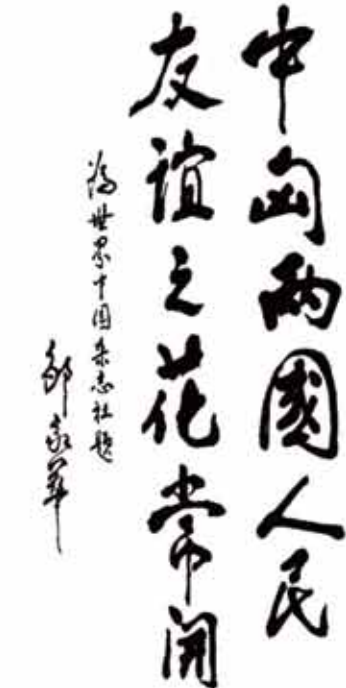 中匈兩國人民
友誼之花常開
為世界中国杂志社题
邹家华